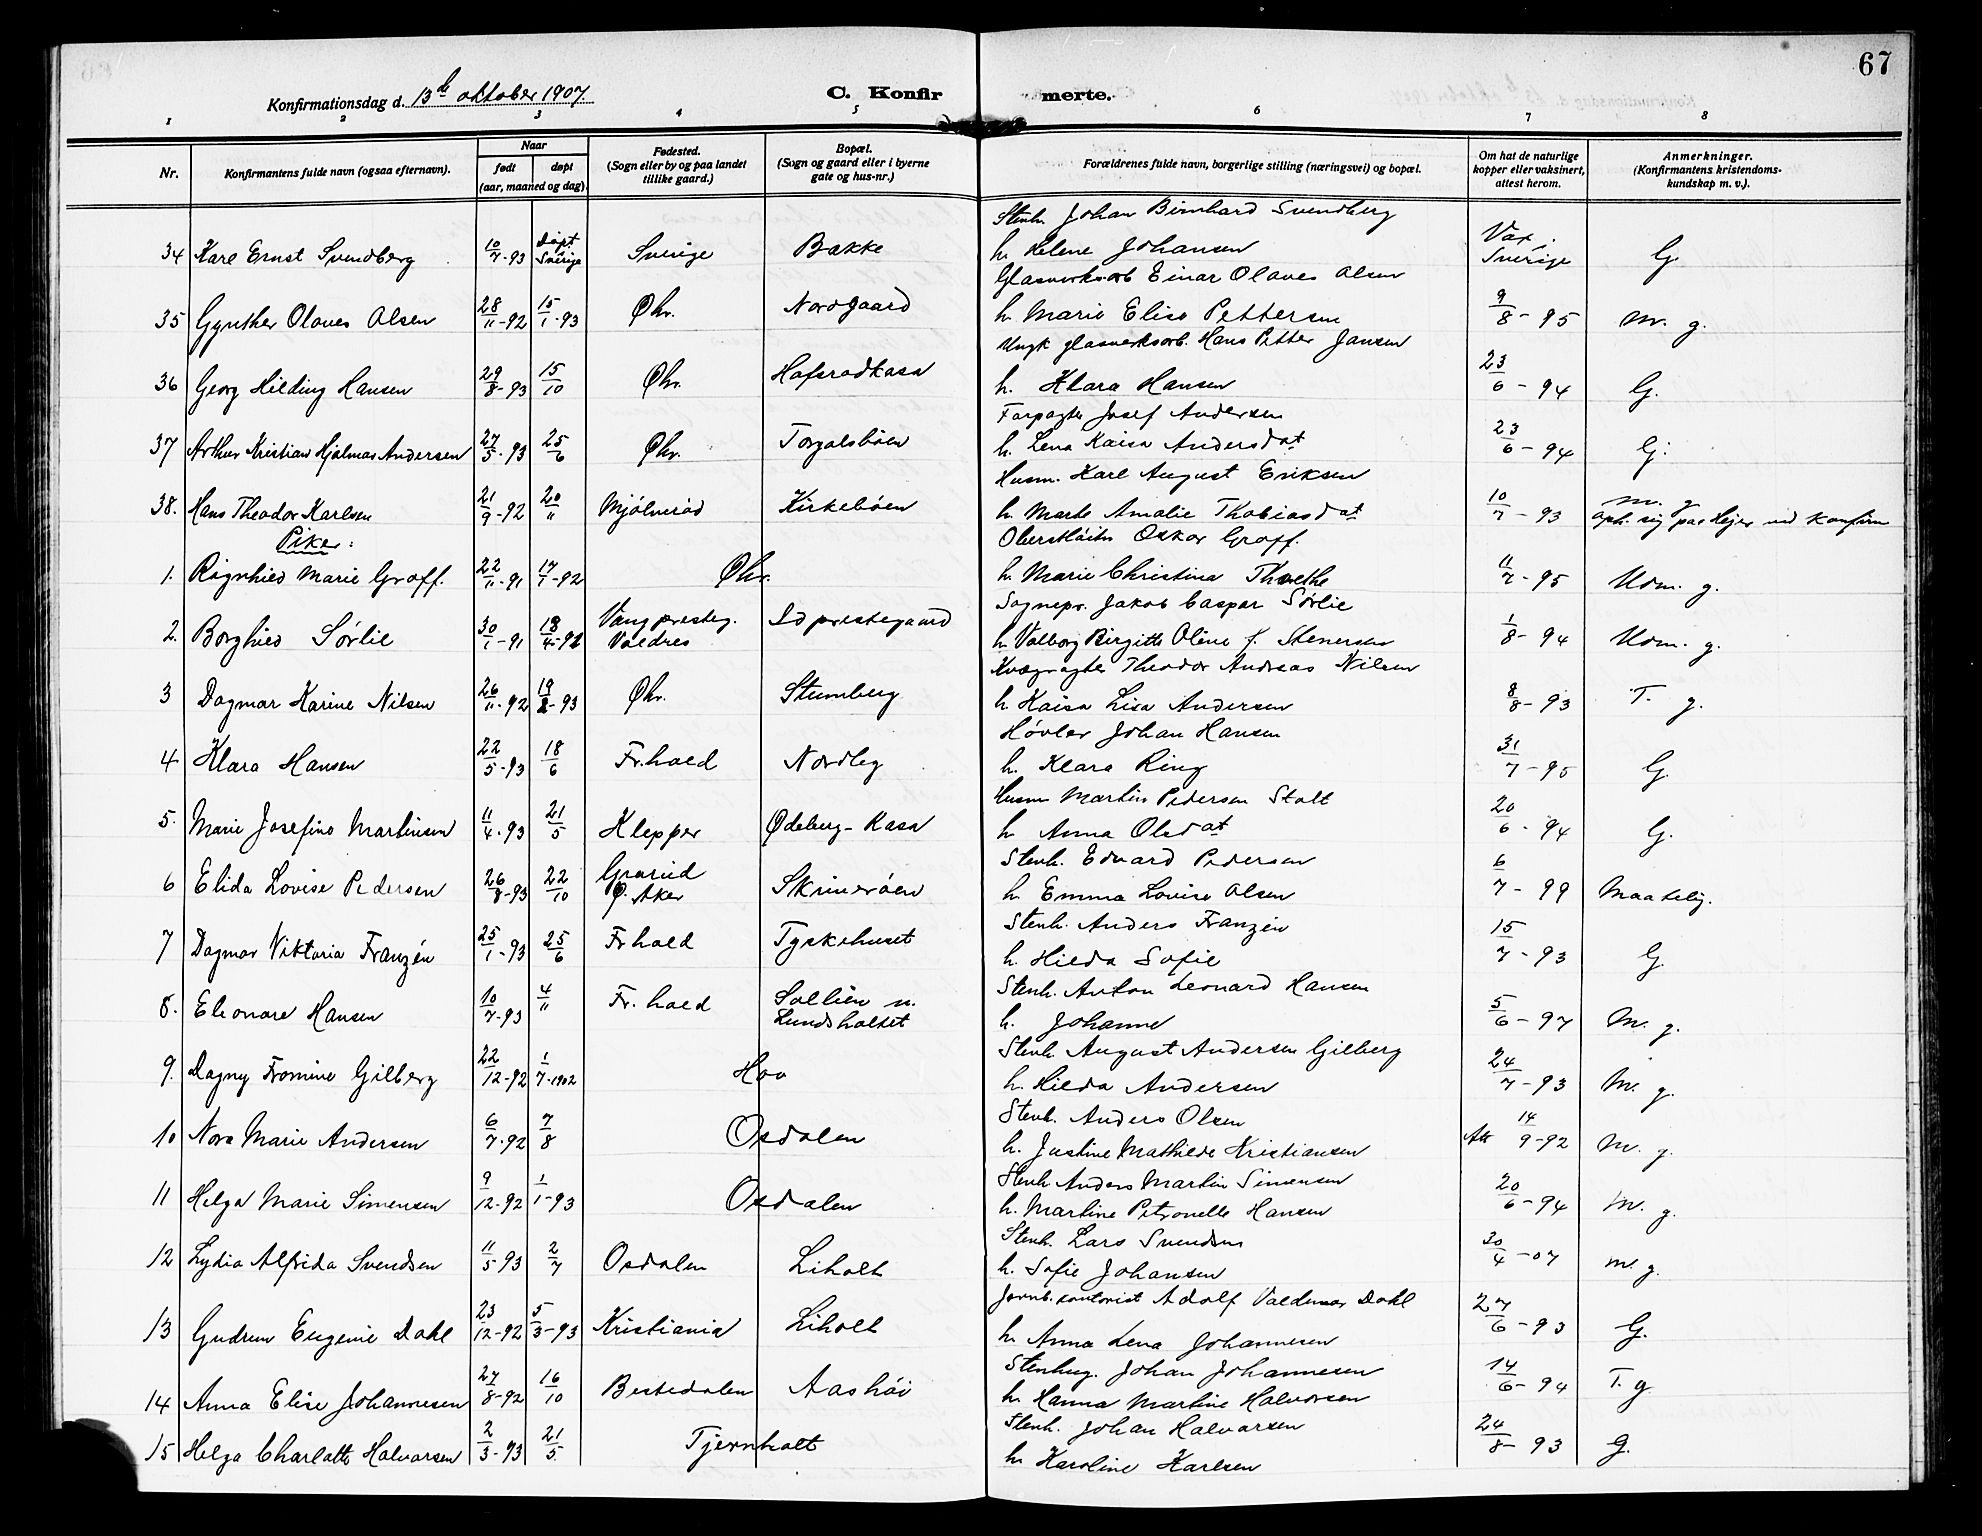 67
Konfirmationsdag d. 13de oktober 1907.
C. Konfirmerte.
1 2 3 4 5 6 7 8
Nr. Konfirmantens fulde navn (ogsaa efternavn). Naar født døpt (aar, maaned og dag). Fødested. (Sogn eller by og paa landet tillike gaard.) Bopæl. (Sogn og gaard eller i byerne gate og hus-nr.) Forældrenes fulde navn, borgerlige stilling (næringsvei) og bopæl. Om hat de naturlige kopper eller vaksinert, attest herom. Anmerkninger. (Konfirmantens kristendoms-kundskap m. v.).
34 Karl Ernst Svendberg 10/7-93 Døpt Sverige Sverige Bakke Stenh. Johan Bernhard Svendberg h. Helene Johansen Vax. Sverige G.
35 Gynther Olaves Olsen 28/11-92 15/1-93 Øhr. Nordgaard Glasverksarb Einar Olaves Olsen h. Marie Elise Pettersen 9/8-95 M. g.
36 Georg Hilding Hansen 29/8-93 15/10 Øhr. Hafsrødkasa Ungk glasverksarb. Hans Petter Jansen h. Klara Hansen 23/6-94 G.
37 Arthur Kristian Hjalmar Andersen 27/5-93 25/6 Øhr. Torgalsbøen Forpagter Josef Andersen h. Lena Kaisa Andersdat 23/6-94 G.
38. Hans Theodor Karlsen 21/9-92 20/11 Mjølnerød Kirkebøen Husm. Karl August Eriksen h. Marte Amalie Thobiasdat 10/7-93 M. g. oph. sig paa Hejer ved Konfirm
Piker:
1. Ragnhild Marie Graff. 22/11-91 17/1-92 Øhr. Oberstløitn Oskar Graff. h. Marie Christina Threthe 11/7-95 Udm. g.
2. Borghild Sørlie 30/1-91 18/4-92 Vang presteg. Valdres Id prestegaard Sognepr. Jakob Caspar Sørlie h. Valborg Birgitte Oline f. Stenersen 1/8-94 Udm. g.
3 Dagmar Karine Nilsen 26/11-92 19/2-93 Øhr. Stumberg Kvægrøgter Theodor Andreas Nilsen h. Kaisa Lisa Andersen 8/8-93 T. g.
4 Klara Hansen 22/5-93 18/6 Fr.hald Nordleg Høvler Johan Hansen h. Klara Ring 31/7-95 G.
5. Marie Josefine Martinsen 11/4-93 21/5 Klepper Ødeberg-Kasa Husm Martin Pedersen Stolt h. Anna Olsdat 20/6-94 G.
6 Elida Lovise Pedersen 26/8-93 22/10 Grorud Ø. Aker Skrinerøen Stenh. Edvard Pedersen h. Emma Lovise Olsen 6/7-99 Maatelig.
7 Dagmar Viktoria Franzén 25/1-93 25/6 Frhald Tyskehuset Stenh. Anders Franzén h. Hilda Sofie 15/7-93 G.
8. Eleonare Hansen 10/7-93 4/11 Fr.hald Sollien u. Lundsholtet Stenh. Anton Leonard Hansen h. Johanne 5/6-97 M. g.
9. Dagny Fromine Gilberg 22/12-92 1/7-1902 Hov Stenh August Andersen Gilberg h. Hilda Andersen 24/7-93 M. g.
10 Nora Marie Andersen 6/7-92 7/8 Osdalen Stenh. Anders Olsen h. Justine Mathilde Kristiansen Att 14/9-92 M. g.
11 Helga Marie Simensen 9/12-92 1/1-93 Osdalen Stenh Anders Martin Simensen h. Martine Petronelle Hansen 20/6-94 M. g.
12 Lydia Alfrida Svendsen 11/5 93 2/7 Osdalen Liholt Stenh. Lars Svendsen h. Sofie Johansen 30/4-07 M. g.
13 Gudrun Eugenie Dahl 23/12-92 5/3-93 Kristiania Liholt Jernb. kontorist Adolf Valdemar Dahl h. Anna Lena Johannesen 27/6-93 G.
14 Anna Elise Johannesen 27/8-92 16/10 Bestedalen Aashøi Stenhug. Johan Johannesen h. Hanna Martine Halvorsen 14/6-94 T. g
15 Helga Charlotte Halvorsen 2/3-93 21/5. Tjernholt Stenh. Johan Halvorsen h. Karoline Karlsen 24/8-93 G.